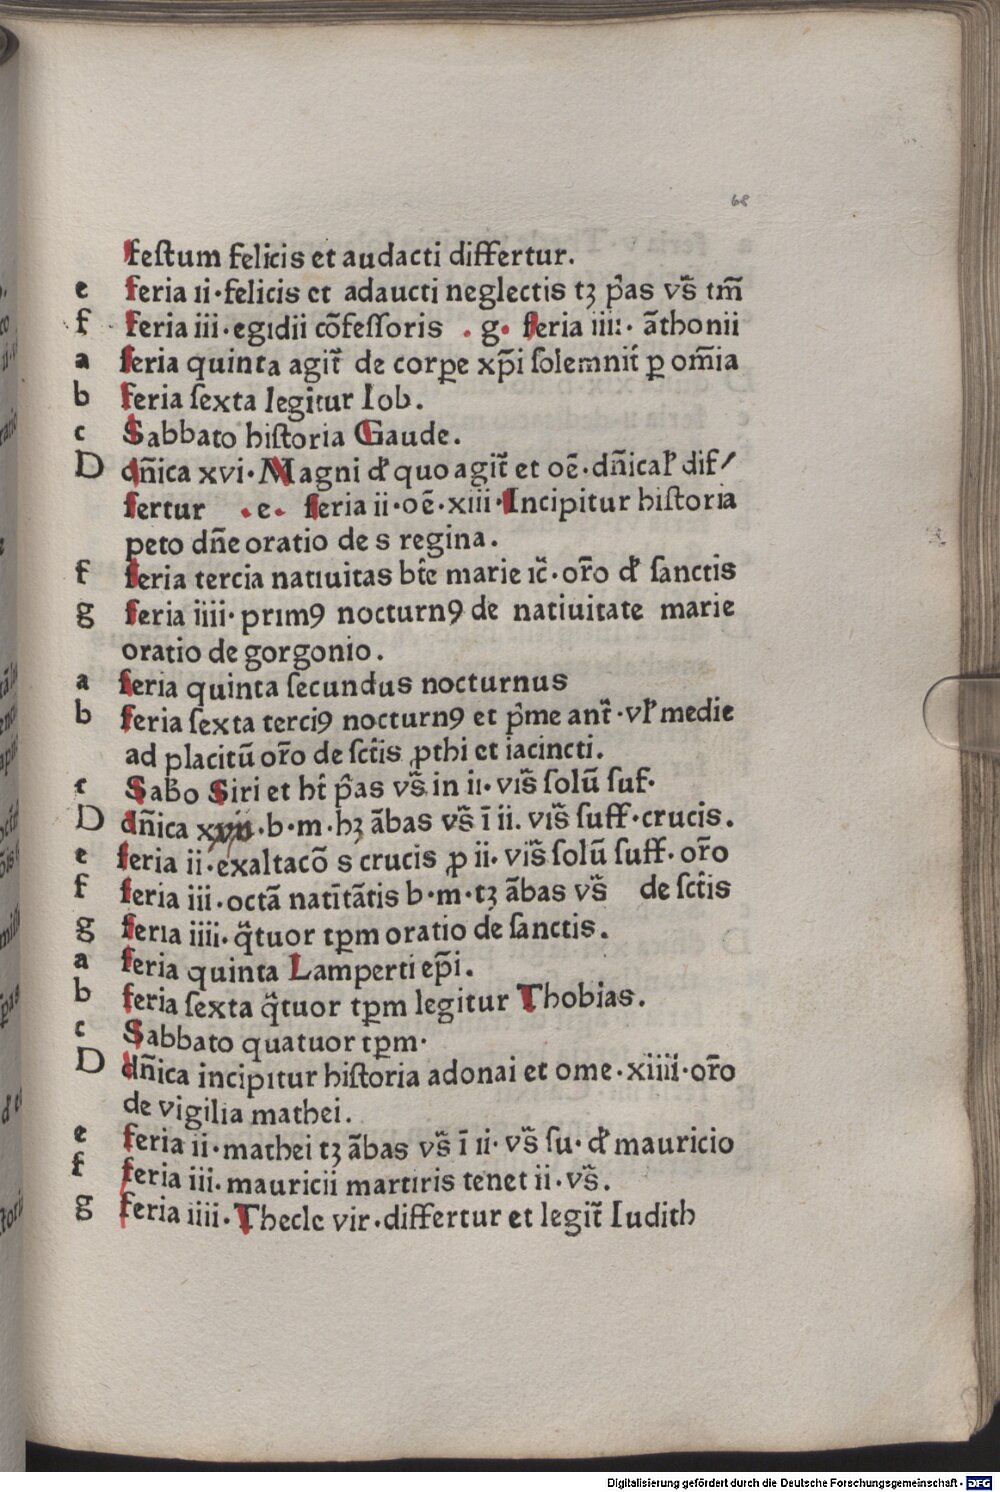 68
festum felicis et audacti differtur.
e feria ii·felicis et adaucti neglectis tꝫ p̄as vs̃ tm̃
f feria iii·egidii cõfessoris . g. feria iiii· ãthonii
a feria quinta agit᷑ de corpe xp̃i solemnit᷑ ꝑ om̃ia
b feria sexta legitur Iob.
c Sabbato historia Gaude.
D dñica xvi·Magni đ quo agit᷑ et oẽ·dñical᷑ dif⸗
fertur .e. feria ii·oẽ·xiii·Incipitur historia
peto dñe oratio de s regina.
f feria tercia natiuitas bt̃e marie ic̃·or̃o đ sanctis
g feria iiii·primꝰ nocturnꝰ de natiuitate marie
oratio de gorgonio.
a feria quinta secundus nocturnus
b feria sexta terciꝰ nocturnꝰ et p̃me ant᷑·vl᷑ medie
ad placitũ or̃o de sct̃is ꝓthi et iacincti.
c Sabb̃o Siri et ht̃ p̃as vs̃ in ii·vis̃ solũ suf·
D dñica xvii·b·m·hꝫ ãbas vs̃ ĩ ii. vis̃ suff·crucis.
e feria ii·exaltacõ s crucis ꝓ ii·vis̃ solũ suff·or̃o
f feria iii·octã natĩtãtis b·m·tꝫ ãbas vs̃ de sct̃is
g feria iiii·q̃tuor tꝑm oratio de sanctis.
a feria quinta Lamperti ep̃i.
b feria sexta q̃tuor tꝑm legitur Thobias.
c Sabbato quatuor tꝑm·
D dñica incipitur historia adonai et ome·xiiii·or̃o
de vigilia mathei.
e feria ii·mathei tꝫ ãbas vs̃ ĩ ii·vs̃ su·đ mauricio
f feria iii·mauricii martiris tenet ii·vs̃.
g feria iiii·Thecle vir·differtur et legit᷑ Iudith
Digitalisierung gefördert durch die Deutsche Forschungsgemeinschaft - DFG